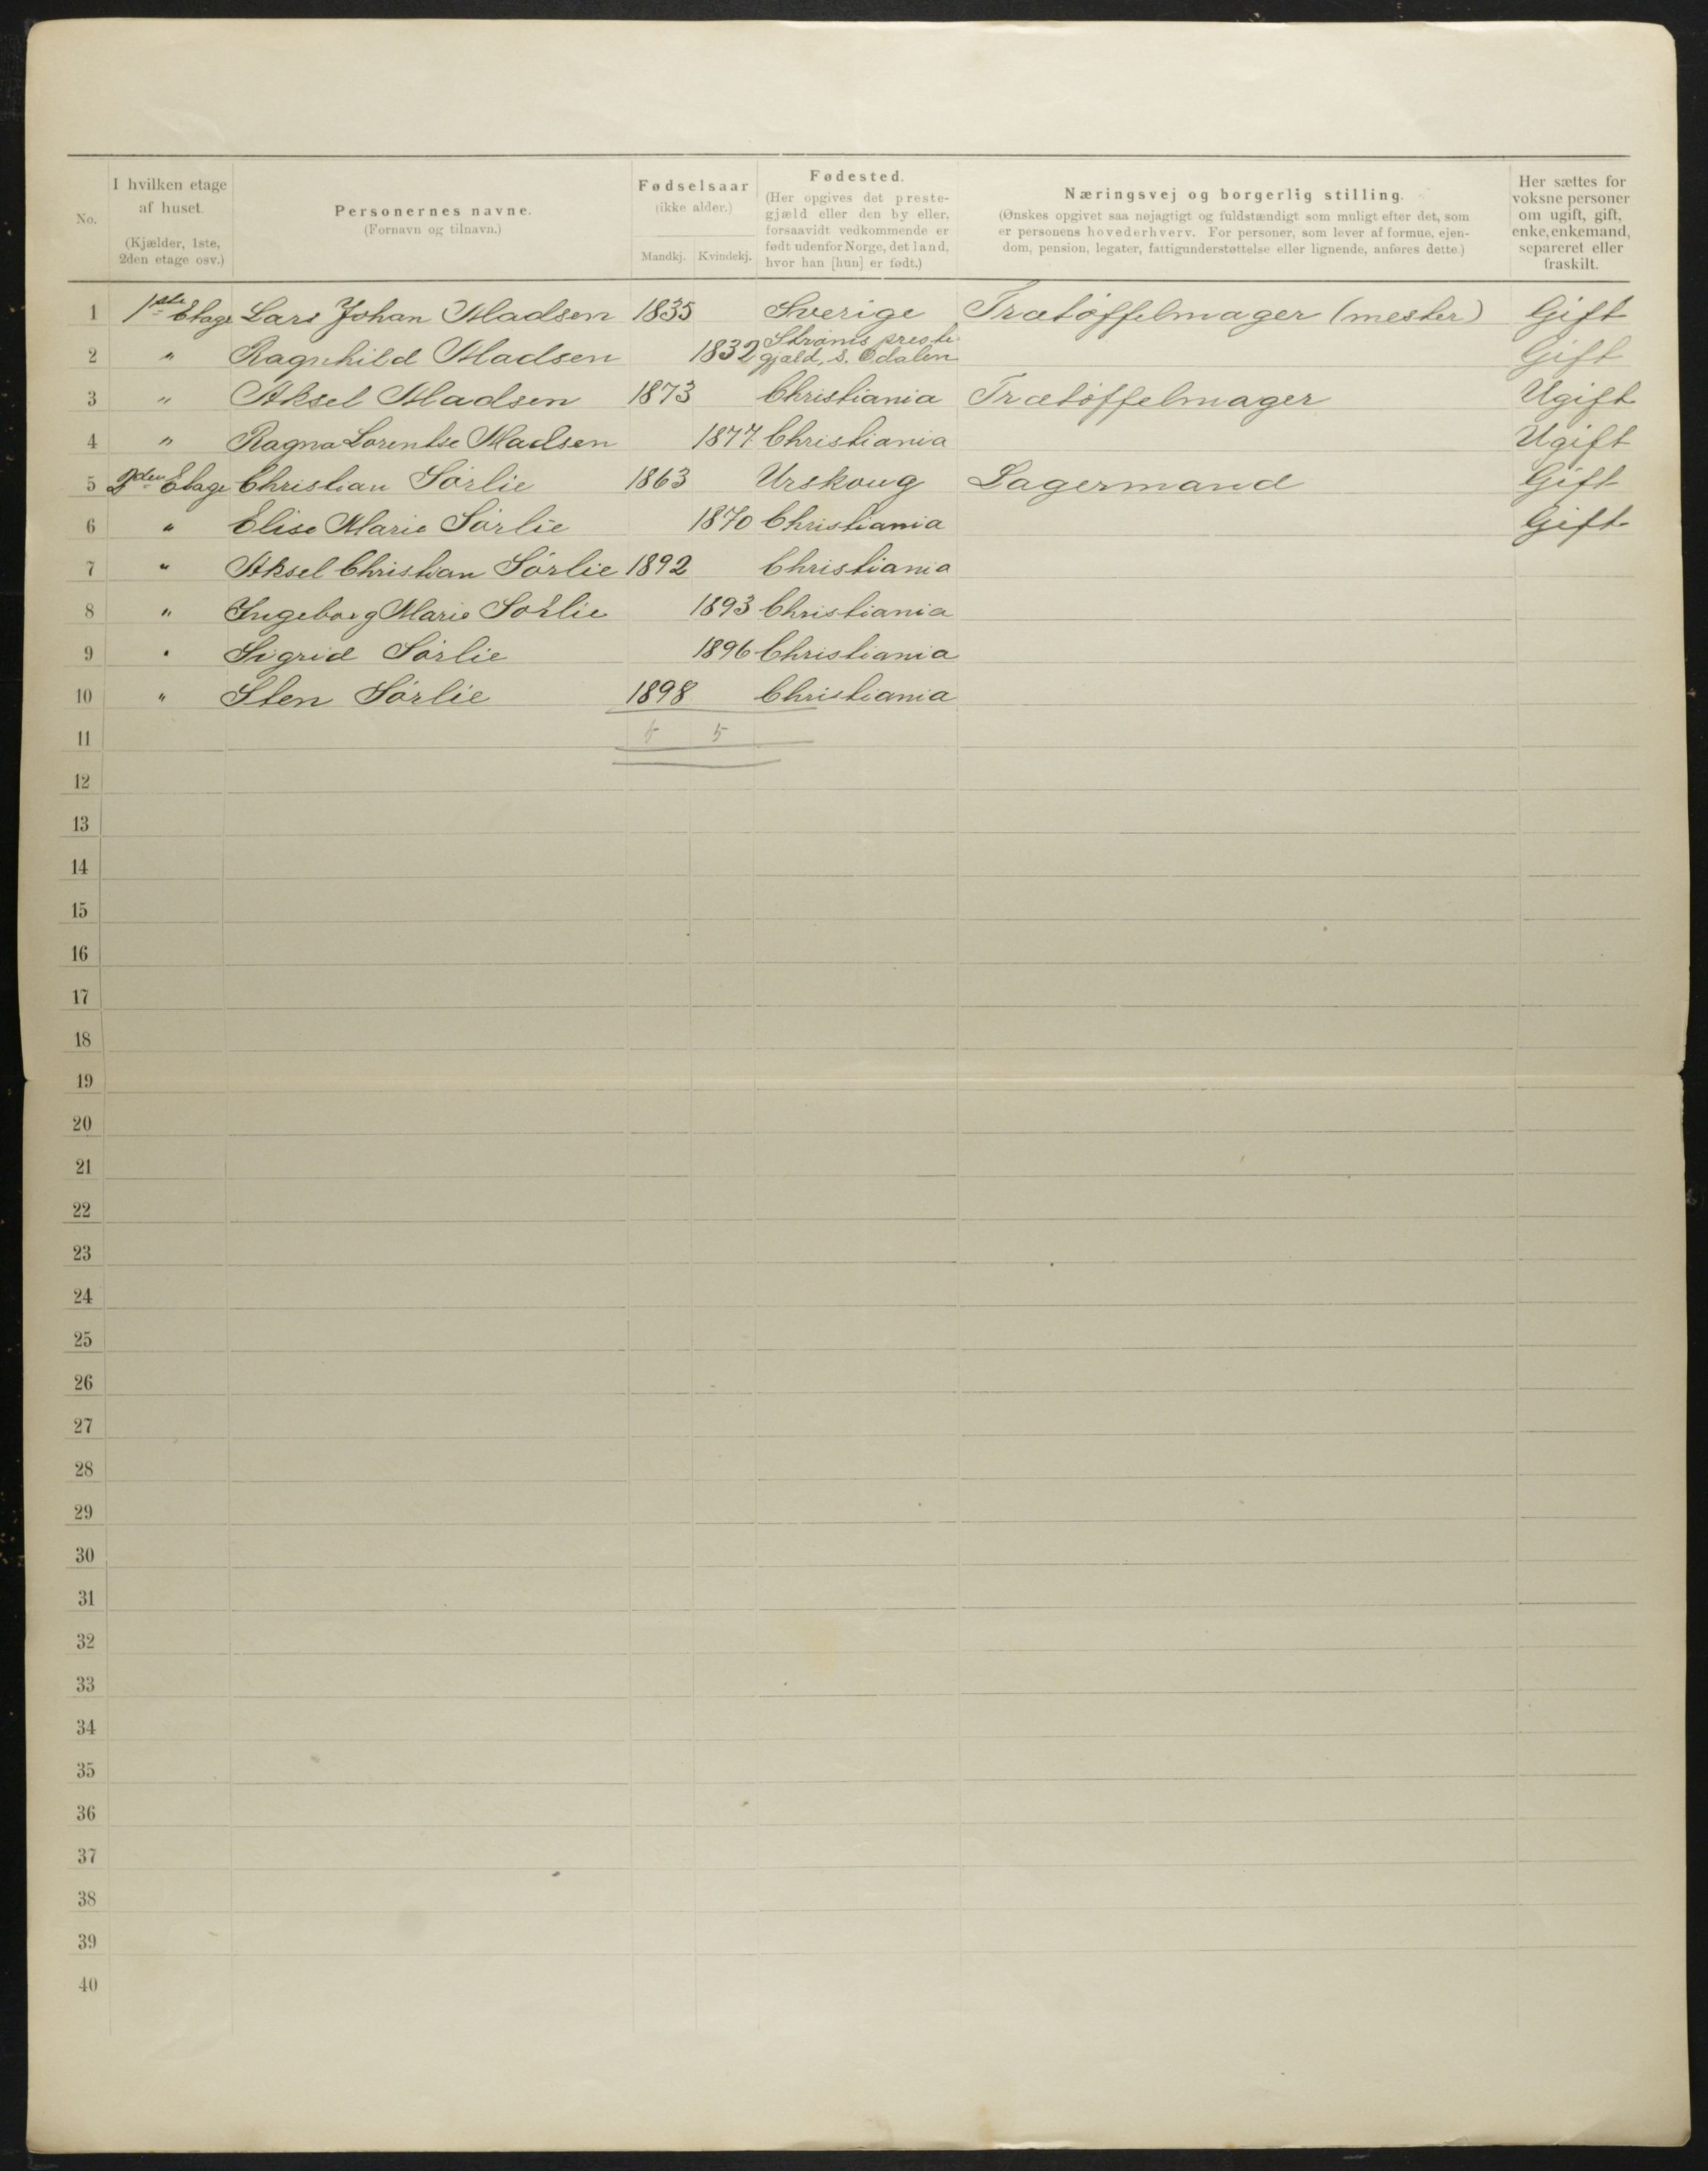 No.
I hvilken etage
af huset.
(Kjælder, 1ste,
2den etage osv.)
Personernes navne.
(Fornavn og tilnavn.)
Fødselsaar
(ikke alder.)
Mandkj. Kvindekj.
Fødested.
(Her opgives det preste-
gjæld eller den by eller,
forsaavidt vedkommende er
født udenfor Norge, det land,
hvor han [hun] er født.)
Næringsvej og borgerlig stilling.
(Ønskes opgivet saa nøjagtigt og fuldstændigt som muligt efter det, som
er personens hovederhverv. For personer, som lever af formue, ejen-
dom, pension, legater, fattigunderstøttelse eller lignende, anføres dette.)
Her sættes for
voksne personer
om ugift, gift,
enke, enkemand,
separeret eller
fraskilt.
1 1ste Etage Lars Johan Madsen 1835 Sverige Trætøffelmager (mester) Gift
2 " Ragnhild Madsen 1832 Strøms preste gjæld, S. Odalen Gift
3 " Aksel Madsen 1873 Christiania Trætøffelmager Ugift
4 " Ragna Lorentse Madsen 1877 Christiania Ugift
5 2den Etage Christian Sørlie 1863 Urskoug Lagermand Gift
6 " Elise Marie Sørlie 1870 Christiania Gift
7 " Aksel Christian Sørlie 1892 Christiania
8 " Ingeborg Marie Sørlie 1893 Christiania
9 " Sigrid Sørlie 1896 Christiania
10 " Sten Sørlie 1898 Christiania
11 5 5
12
13
14
15
16
17
18
19
20
21
22
23
24
25
26
27
28
29
30
31
32
33
34
35
36
37
38
39
40